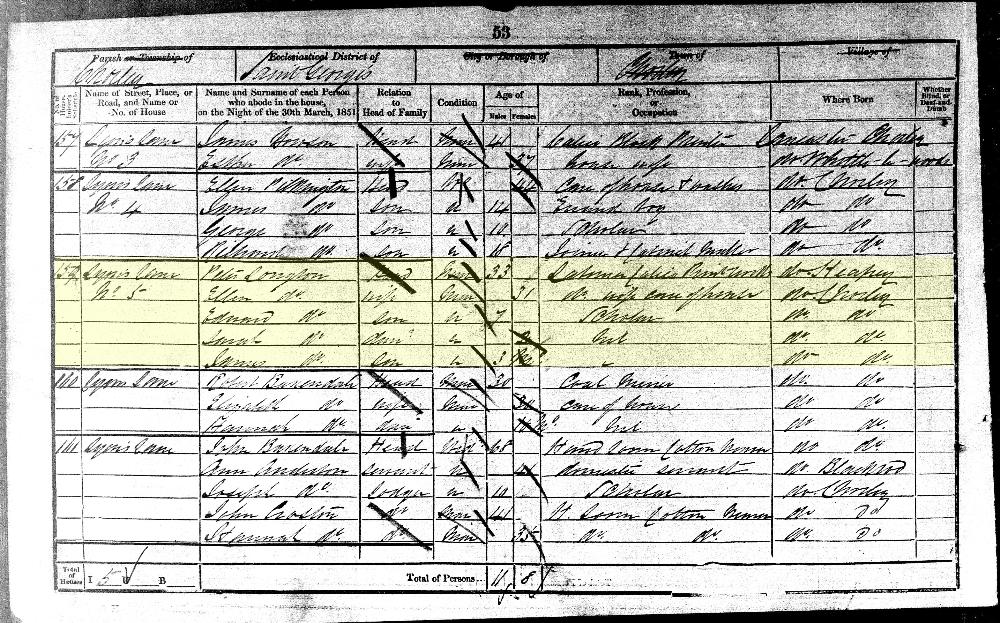 53
Parish or Township of Ecclesiastical District of City or Borough of Town of Village of
Chorley Saint Georges Chorley
Name of Street, Place, or Road, and Name or No. of House
Name and Surname of each Person who abode in the house, on the Night of the 30th March, 1851
Relation to Head of Family
Condition
Age of
Males Females
Rank, Profession, or Occupation
Where Born
Whether Blind, or Deaf-and-Dumb
157 Lyons Lane James Howson Head Mar 41 Calico Block Printer Lancaster Chorley
No 3 Esther do wife Mar 37 house wife do Whittle le woods
158 Lyons Lane Ellen Pilkington Head care of house & do Chorley
No 4 James do son u 14 Errand boy do do
George do son u 10 Scholar do do
Richmond do son u 18 Joiner & Cabinet Maker do do
159 Lyons Lane Peter Longton Head Mar 33 Calico Printworks do Heapey
No 5 Ellen do wife Mar 31 do wife care of house do Chorley
Edward do son u 7 Scholar do do
Sarah do daur u 2 do do
James do son u 3 Mo do do
160 Lyons Lane Robert Baxendale Head Mar 30 Coal Miner do do
Elizabeth do wife Mar 30 care of house do do
Hannah do dau u do do
161 Lyons Lane John Baxendale Head Wid 68 Hand Loom Cotton Weaver do do
Ann Anderton servant u 21 domestic servant do Blackrod
Joseph do lodger u 10 Scholar do Chorley
John Croston do Mar 41 H Loom Cotton Weaver do Do
Hannah do do Mar 35 do do do Do
Total of Houses I 5 U B Total of Persons 11 8